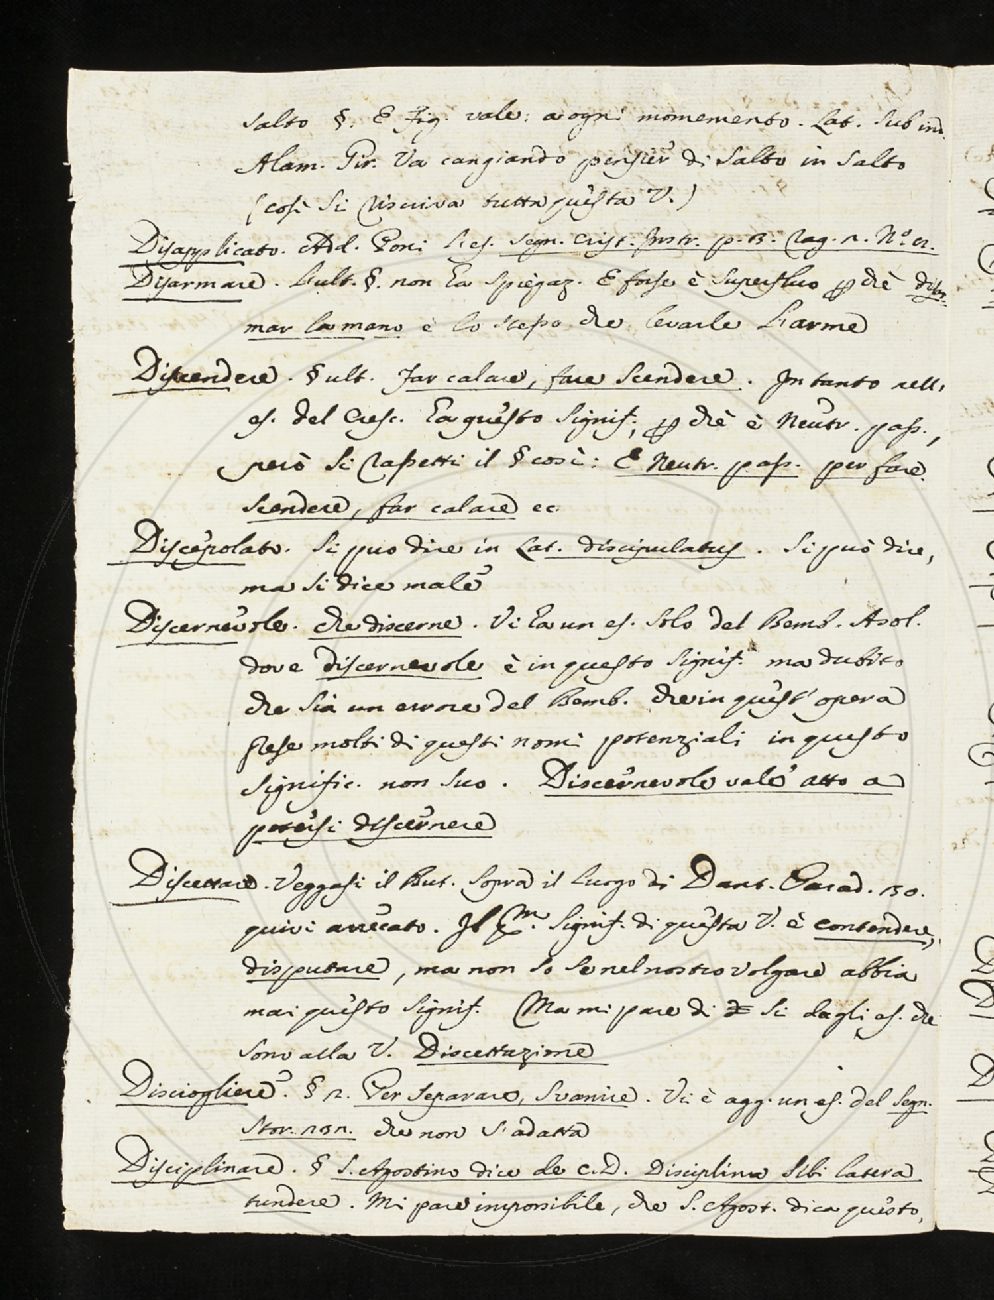 salto §. E Fig. vale: a ogni momemento. Lat. subind.
Alam. Gir. Va cangiando pensier di salto in salto
(così si riscriva tutta questa V.)
Disapplicato. Add. Poni l'es. Segn. Crist. Instr. p. 3. rag. 1. N.o 12.
Disarmare. L'ult. §. non ha spiegaz. E forse è superfluo perchè disar-
mar la mano è lo stesso che levarle l'arme
Discendere. § ult. Far calare, fare scendere. Intanto nell'
es. del Cresc. ha questo signif., perchè è Neutr. pass.,
però si rassetti il § così: E Neutr. pass. per fare
scendere, far calare ec.
Discepolato. Si puo dire in Lat. discipulatus. Si può dire,
ma si dice male
Discernevole. che discerne. Vi ha un es. solo del Bemb. Asol.
dove discernevole è in questo signif. ma dubito
che sia un errore del Bemb. che in quest'opera
prese molti di questi nomi potenziali in questo
signific. non suo. Discernevole vale atto a
potersi discernere
Discettare. Veggasi il But. sopra il luogo di Dant. Parad. 30.
quivi arrecato. Il signif. di questa V. è contendere,
disputare, ma non so se nel nostro volgare abbia
mai questo signif. Ma mi pare di si dagli es. che
sono alla V. Discettazione
Disciogliere. § 2. Per separare, svanire. Vi è agg. un es. del Segn.
Stor. che non s'adatta
Disciplinare. § S. Agostino dice de C. D. Disciplina sibi latera
tundere. Mi pare impossibile, che S. Agost. dica questo,